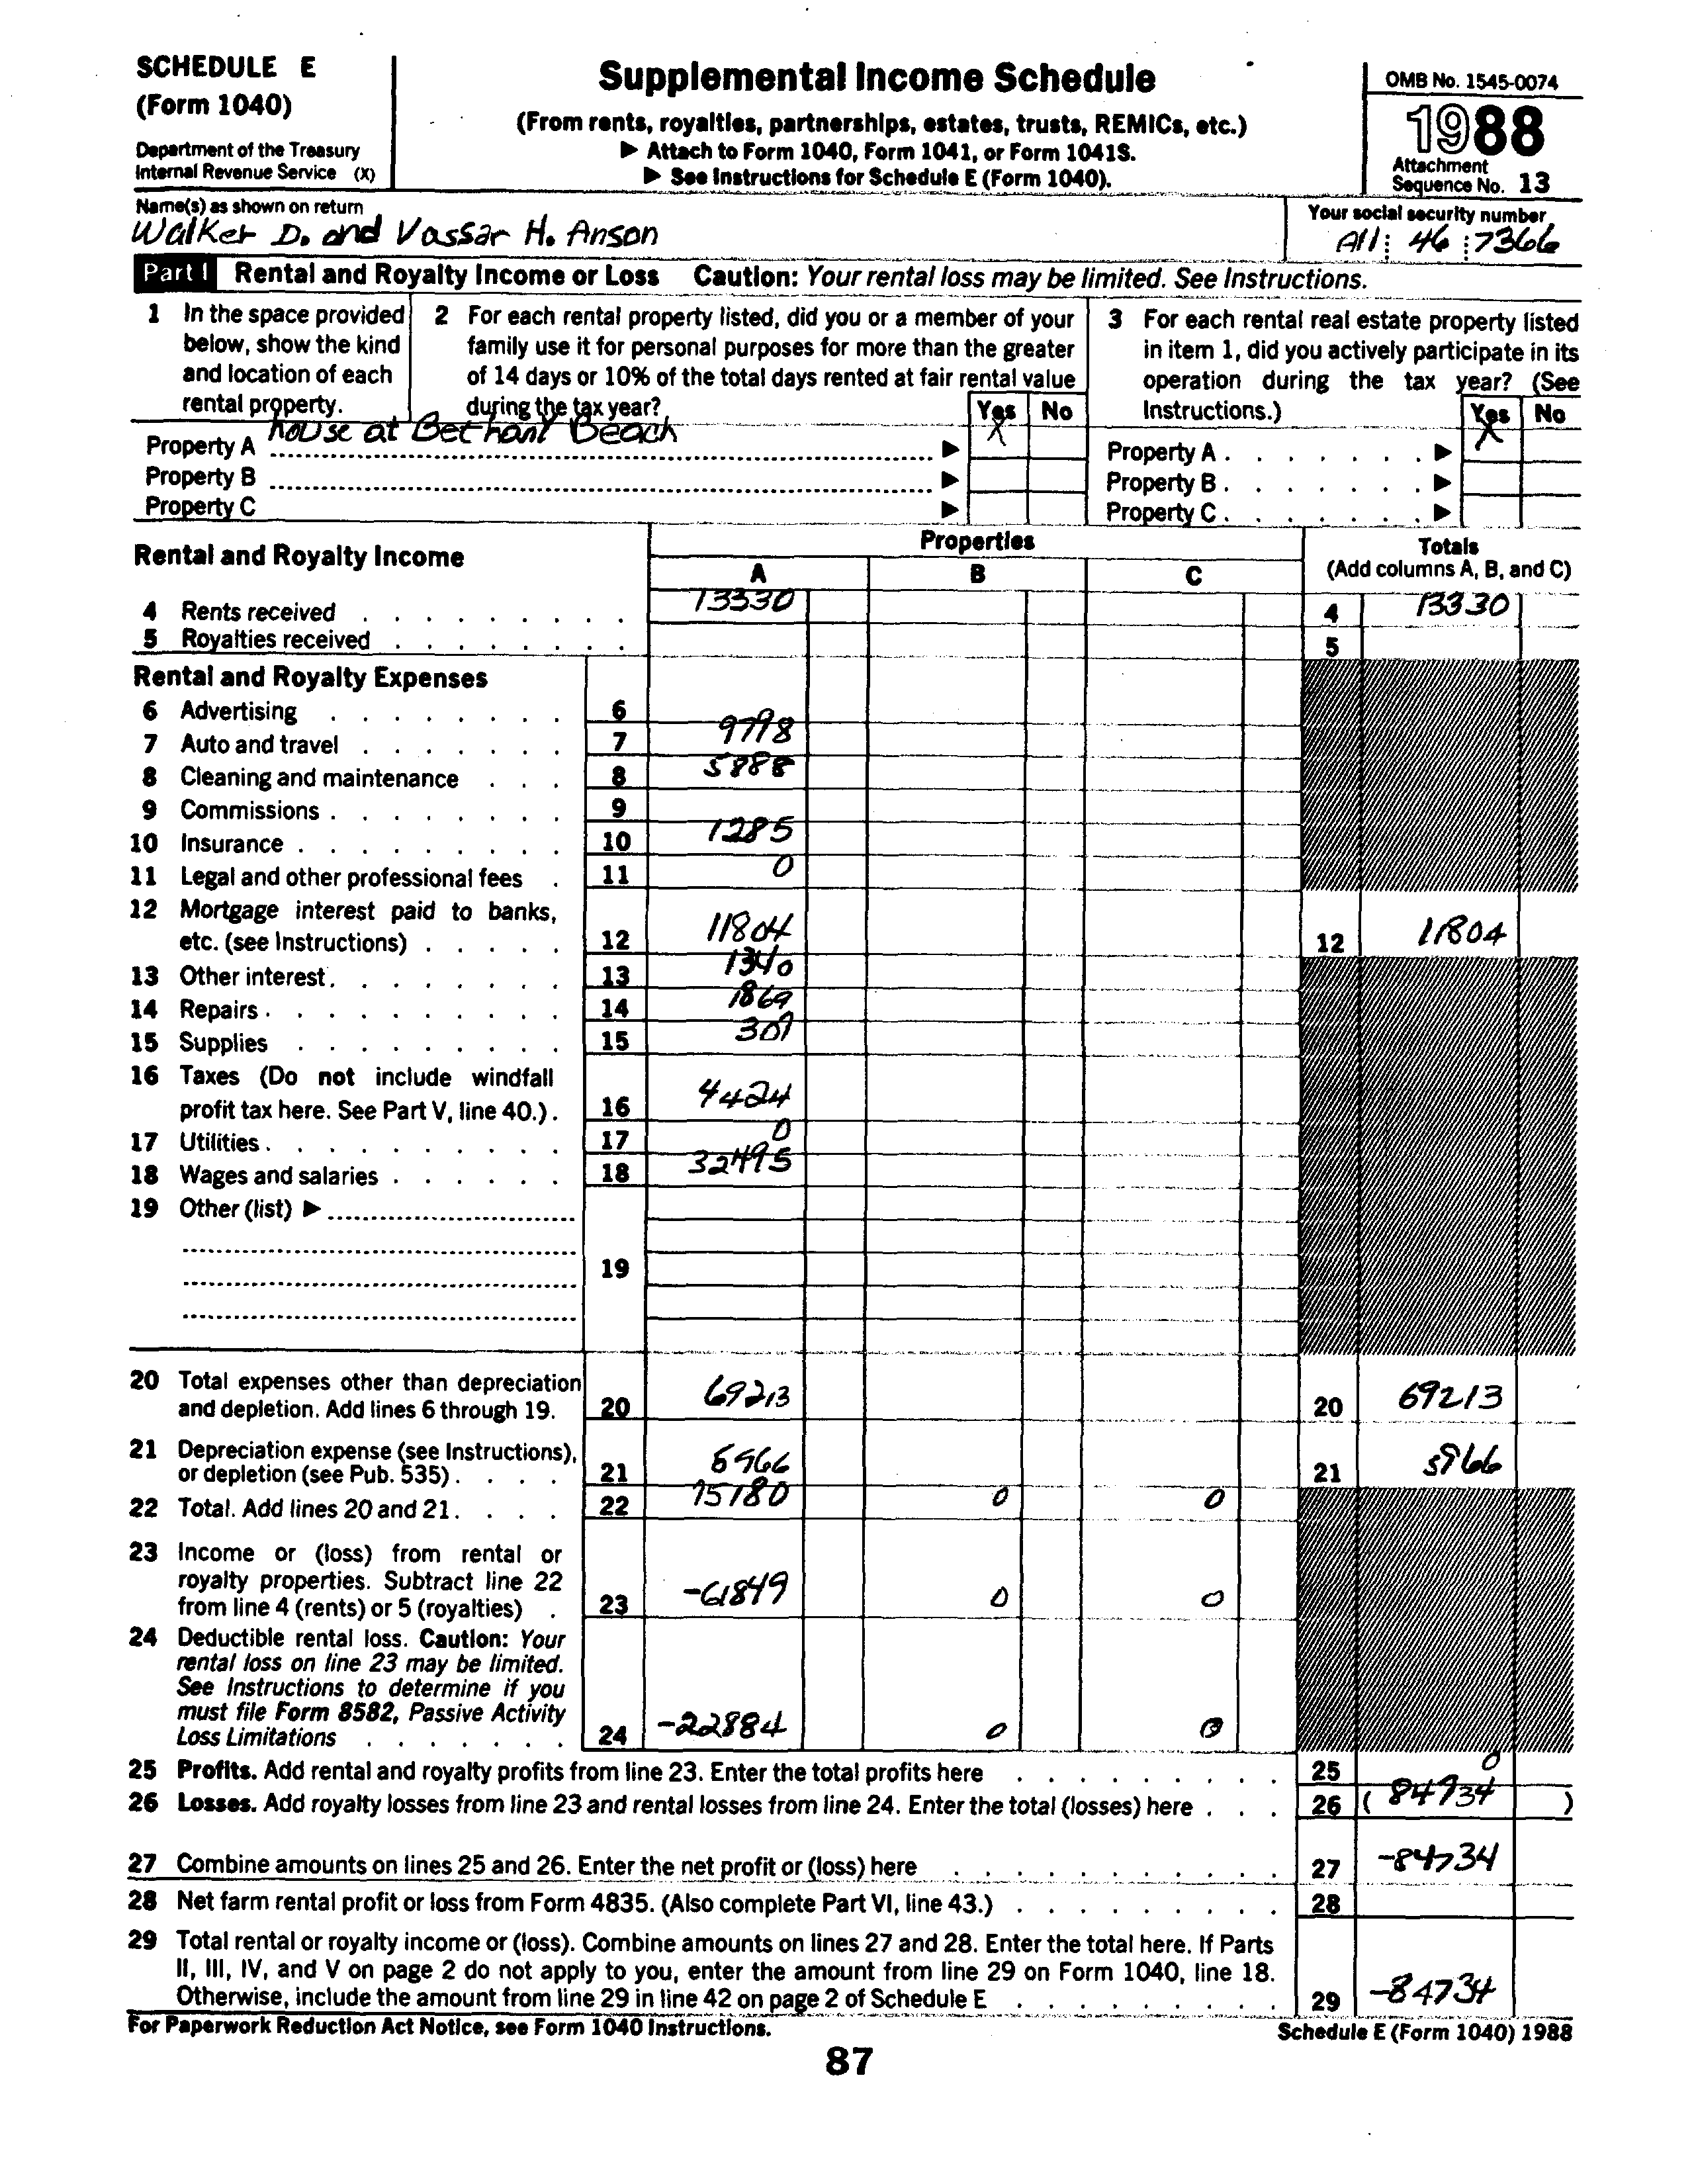 SCHEDULE E
(Form 1040)
Department of the Treasury
Internal Revenue Service (X)
Supplemental Income Schedule
(From rents, royalties, partnerships, estates, trusts, REMICs, etc.)
▶ Attach to Form 1040, Form 1041, or Form 1041S.
▶ See Instructions for Schedule E (Form 1040).
OMB No. 1545-0074
1988
Attachment
Sequence No. 13
Name(s) as shown on return
Walker D. and Vassar H. Anson
Your social security number
A11: 46 :7366
Part I Rental and Royalty Income or Loss Caution: Your rental loss may be limited. See Instructions.
1 In the space provided
below, show the kind
and location of each
rental property.
2 For each rental property listed, did you or a member of your
family use it for personal purposes for more than the greater
of 14 days or 10% of the total days rented at fair rental value
during the tax year?
Yes No
3 For each rental real estate property listed
in item 1, did you actively participate in its
operation during the tax year? (See
Instructions.)
Yes No
Property A house at Bethany Beach ▶ X
Property B ▶
Property C ▶
Property A . . . . . . . ▶ X
Property B . . . . . . . ▶
Property C . . . . . . . ▶
Rental and Royalty Income
Properties
A B C
Totals
(Add columns A, B, and C)
4 Rents received 13330 4 13330
5 Royalties received 5
Rental and Royalty Expenses
6 Advertising 6
7 Auto and travel 7 9798
8 Cleaning and maintenance 8 5888
9 Commissions 9
10 Insurance 10 1285
11 Legal and other professional fees 11 0
12 Mortgage interest paid to banks,
etc. (see Instructions) 12 11804 12 11804
13 Other interest 13 1340
14 Repairs 14 1869
15 Supplies 15 309
16 Taxes (Do not include windfall
profit tax here. See Part V, line 40.) 16 4424
17 Utilities 17 0
18 Wages and salaries 18 32495
19 Other (list) ▶
19
20 Total expenses other than depreciation
and depletion. Add lines 6 through 19. 20 69213 20 69213
21 Depreciation expense (see Instructions),
or depletion (see Pub. 535) 21 5966 21 5966
22 Total. Add lines 20 and 21 22 75180 0 0
23 Income or (loss) from rental or
royalty properties. Subtract line 22
from line 4 (rents) or 5 (royalties) 23 -61849 0 0
24 Deductible rental loss. Caution: Your
rental loss on line 23 may be limited.
See Instructions to determine if you
must file Form 8582, Passive Activity
Loss Limitations 24 -22884 0 0
25 Profits. Add rental and royalty profits from line 23. Enter the total profits here 25 0
26 Losses. Add royalty losses from line 23 and rental losses from line 24. Enter the total (losses) here 26 ( 84734 )
27 Combine amounts on lines 25 and 26. Enter the net profit or (loss) here 27 -84734
28 Net farm rental profit or loss from Form 4835. (Also complete Part VI, line 43.) 28
29 Total rental or royalty income or (loss). Combine amounts on lines 27 and 28. Enter the total here. If Parts
II, III, IV, and V on page 2 do not apply to you, enter the amount from line 29 on Form 1040, line 18.
Otherwise, include the amount from line 29 in line 42 on page 2 of Schedule E 29 -84734
For Paperwork Reduction Act Notice, see Form 1040 Instructions.
Schedule E (Form 1040) 1988
87